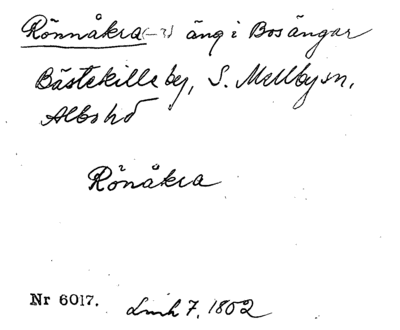 Rönnåkra (–?) äng i Bosängar
Bästekille by, S. Mellby sn,
Albo hd
Rönåkra
Nr 6017. Lmh 7, 1802